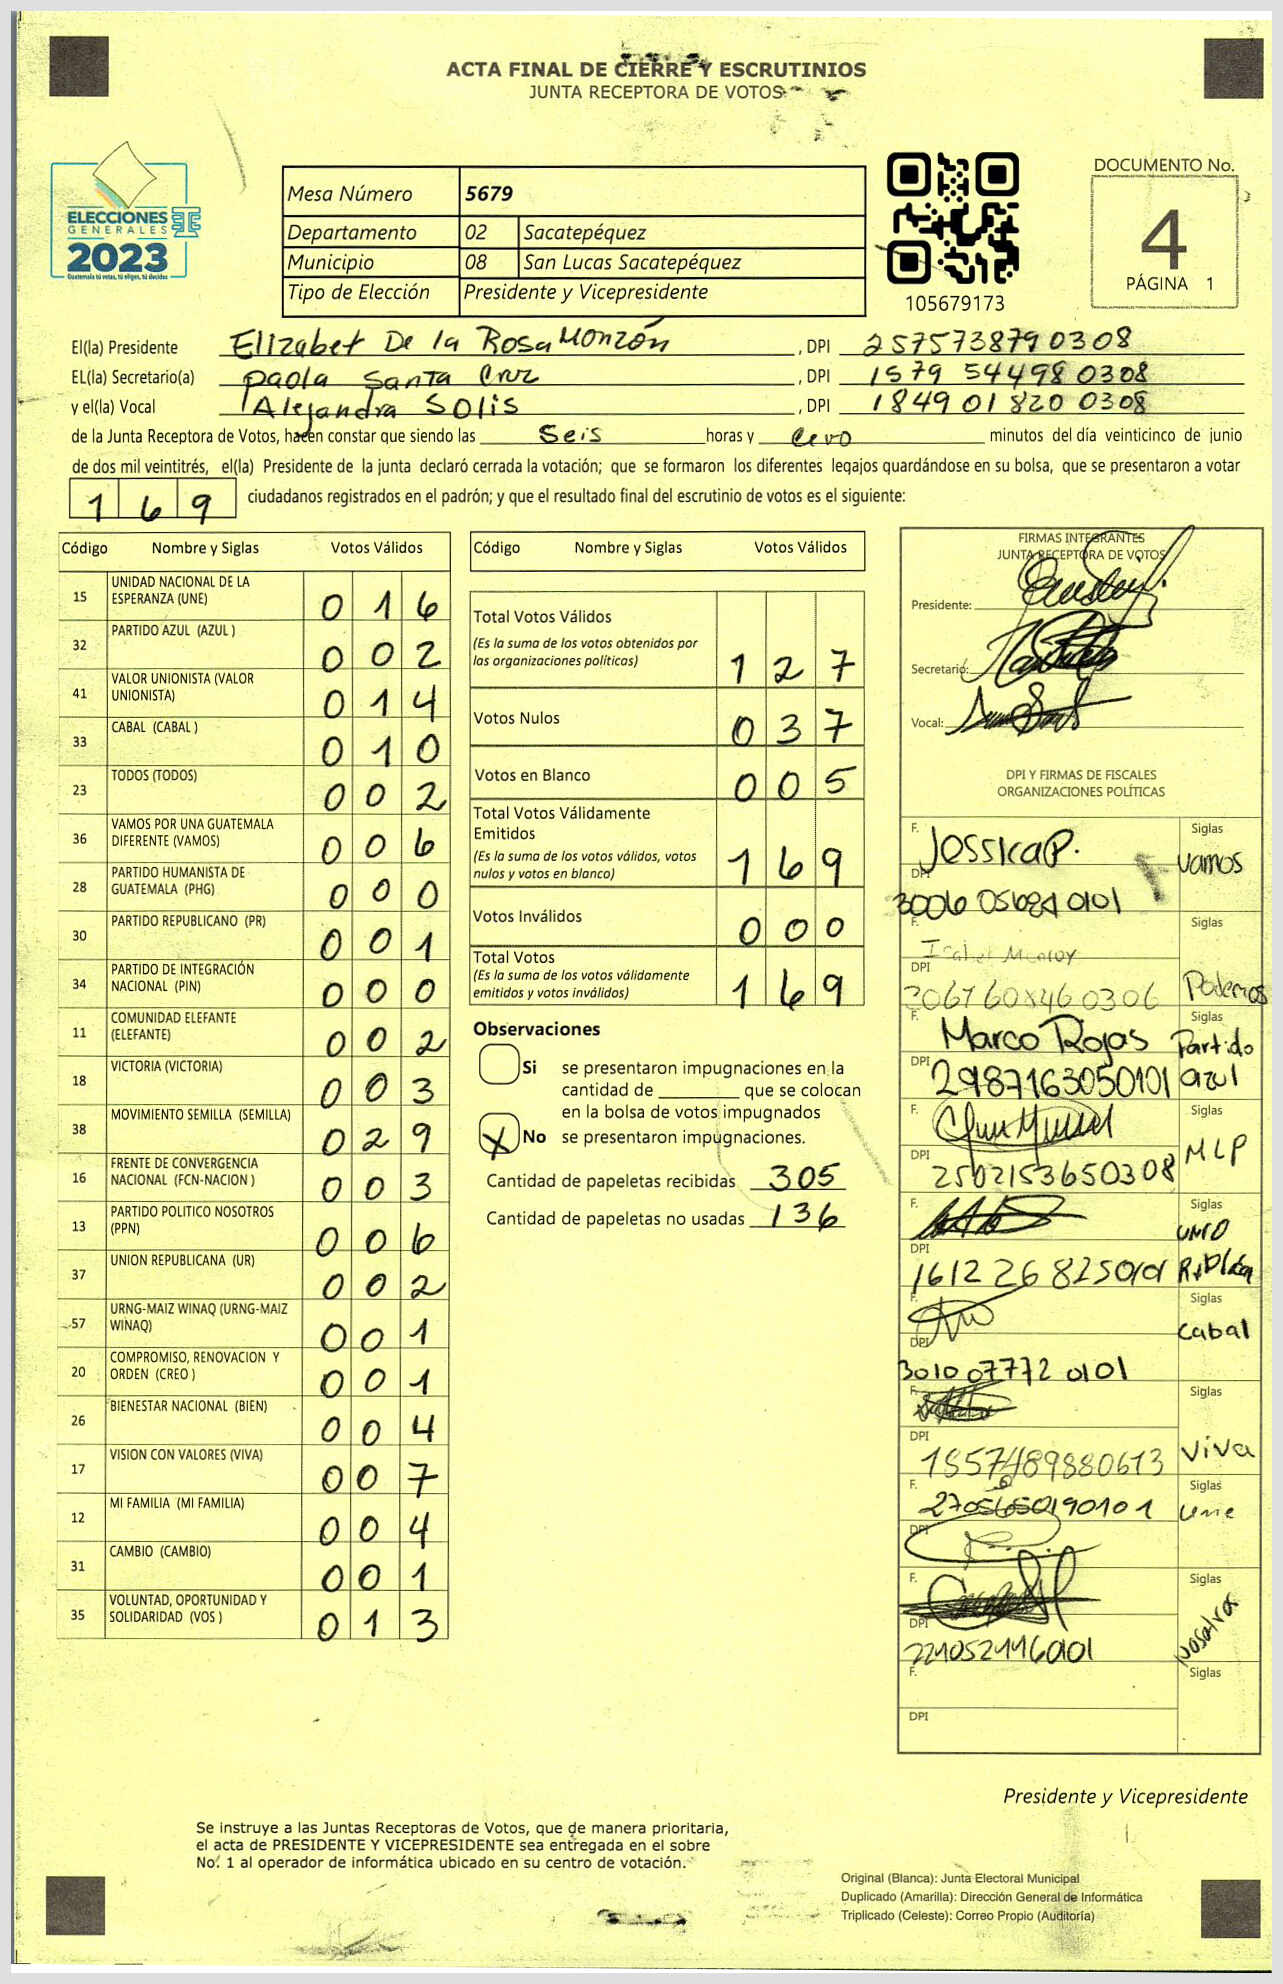 ACTA FINAL DE CIERRE Y ESCRUTINIOS
JUNTA RECEPTORA DE VOTOS
ELECCIONES
GENERALES
2023
Guatemala tú votas, tú eliges, tú decides
Mesa Número 5679
Departamento 02 Sacatepéquez
Municipio 08 San Lucas Sacatepéquez
Tipo de Elección Presidente y Vicepresidente
105679173
DOCUMENTO No.
4
PÁGINA 1
El(la) Presidente Elizabet De la Rosa Monzón, DPI 257573879 0308
EL(la) Secretario(a) Paola Santa Cruz, DPI 1579 54498 0308
y el(la) Vocal Alejandra Solis, DPI 184901820 0308
de la Junta Receptora de Votos, hacen constar que siendo las Seis horas y cero minutos del día veinticinco de junio
de dos mil veintitrés, el(la) Presidente de la junta declaró cerrada la votación; que se formaron los diferentes legajos guardándose en su bolsa, que se presentaron a votar
169 ciudadanos registrados en el padrón; y que el resultado final del escrutinio de votos es el siguiente:
Código Nombre y Siglas Votos Válidos
15 UNIDAD NACIONAL DE LA ESPERANZA (UNE) 016
32 PARTIDO AZUL (AZUL ) 002
41 VALOR UNIONISTA (VALOR UNIONISTA) 014
33 CABAL (CABAL ) 010
23 TODOS (TODOS) 002
36 VAMOS POR UNA GUATEMALA DIFERENTE (VAMOS) 006
28 PARTIDO HUMANISTA DE GUATEMALA (PHG) 000
30 PARTIDO REPUBLICANO (PR) 001
34 PARTIDO DE INTEGRACIÓN NACIONAL (PIN) 000
11 COMUNIDAD ELEFANTE (ELEFANTE) 002
18 VICTORIA (VICTORIA) 003
38 MOVIMIENTO SEMILLA (SEMILLA) 029
16 FRENTE DE CONVERGENCIA NACIONAL (FCN-NACION ) 003
13 PARTIDO POLITICO NOSOTROS (PPN) 006
37 UNION REPUBLICANA (UR) 002
57 URNG-MAIZ WINAQ (URNG-MAIZ WINAQ) 001
20 COMPROMISO, RENOVACION Y ORDEN (CREO ) 001
26 BIENESTAR NACIONAL (BIEN) 004
17 VISION CON VALORES (VIVA) 007
12 MI FAMILIA (MI FAMILIA) 004
31 CAMBIO (CAMBIO) 001
35 VOLUNTAD, OPORTUNIDAD Y SOLIDARIDAD (VOS ) 013
Código Nombre y Siglas Votos Válidos
Total Votos Válidos 127
(Es la suma de los votos obtenidos por
las organizaciones políticas)
Votos Nulos 037
Votos en Blanco 005
Total Votos Válidamente
Emitidos 169
(Es la suma de los votos válidos, votos
nulos y votos en blanco)
Votos Inválidos 000
Total Votos 169
(Es la suma de los votos válidamente
emitidos y votos inválidos)
Observaciones
Si se presentaron impugnaciones en la
cantidad de ________ que se colocan
en la bolsa de votos impugnados
X No se presentaron impugnaciones.
Cantidad de papeletas recibidas 305
Cantidad de papeletas no usadas 136
FIRMAS INTEGRANTES
JUNTA RECEPTORA DE VOTOS
Presidente:
Secretario:
Vocal:
DPI Y FIRMAS DE FISCALES
ORGANIZACIONES POLÍTICAS
F. JessicaP. Siglas Vamos
DPI
F. Siglas Podemos
DPI
F. Marco Rojas Siglas Partido azul
DPI 2987163050101
F. Siglas MLP
DPI 2502153650308
F. Siglas
DPI
F. Siglas Cabal
DPI 3010 07772 0101
F. Siglas Viva
DPI
F. Siglas une
DPI
F. Siglas Nosotros
DPI
F. Siglas
DPI
Presidente y Vicepresidente
Se instruye a las Juntas Receptoras de Votos, que de manera prioritaria,
el acta de PRESIDENTE Y VICEPRESIDENTE sea entregada en el sobre
No. 1 al operador de informática ubicado en su centro de votación.
Original (Blanca): Junta Electoral Municipal
Duplicado (Amarilla): Dirección General de Informática
Triplicado (Celeste): Correo Propio (Auditoría)